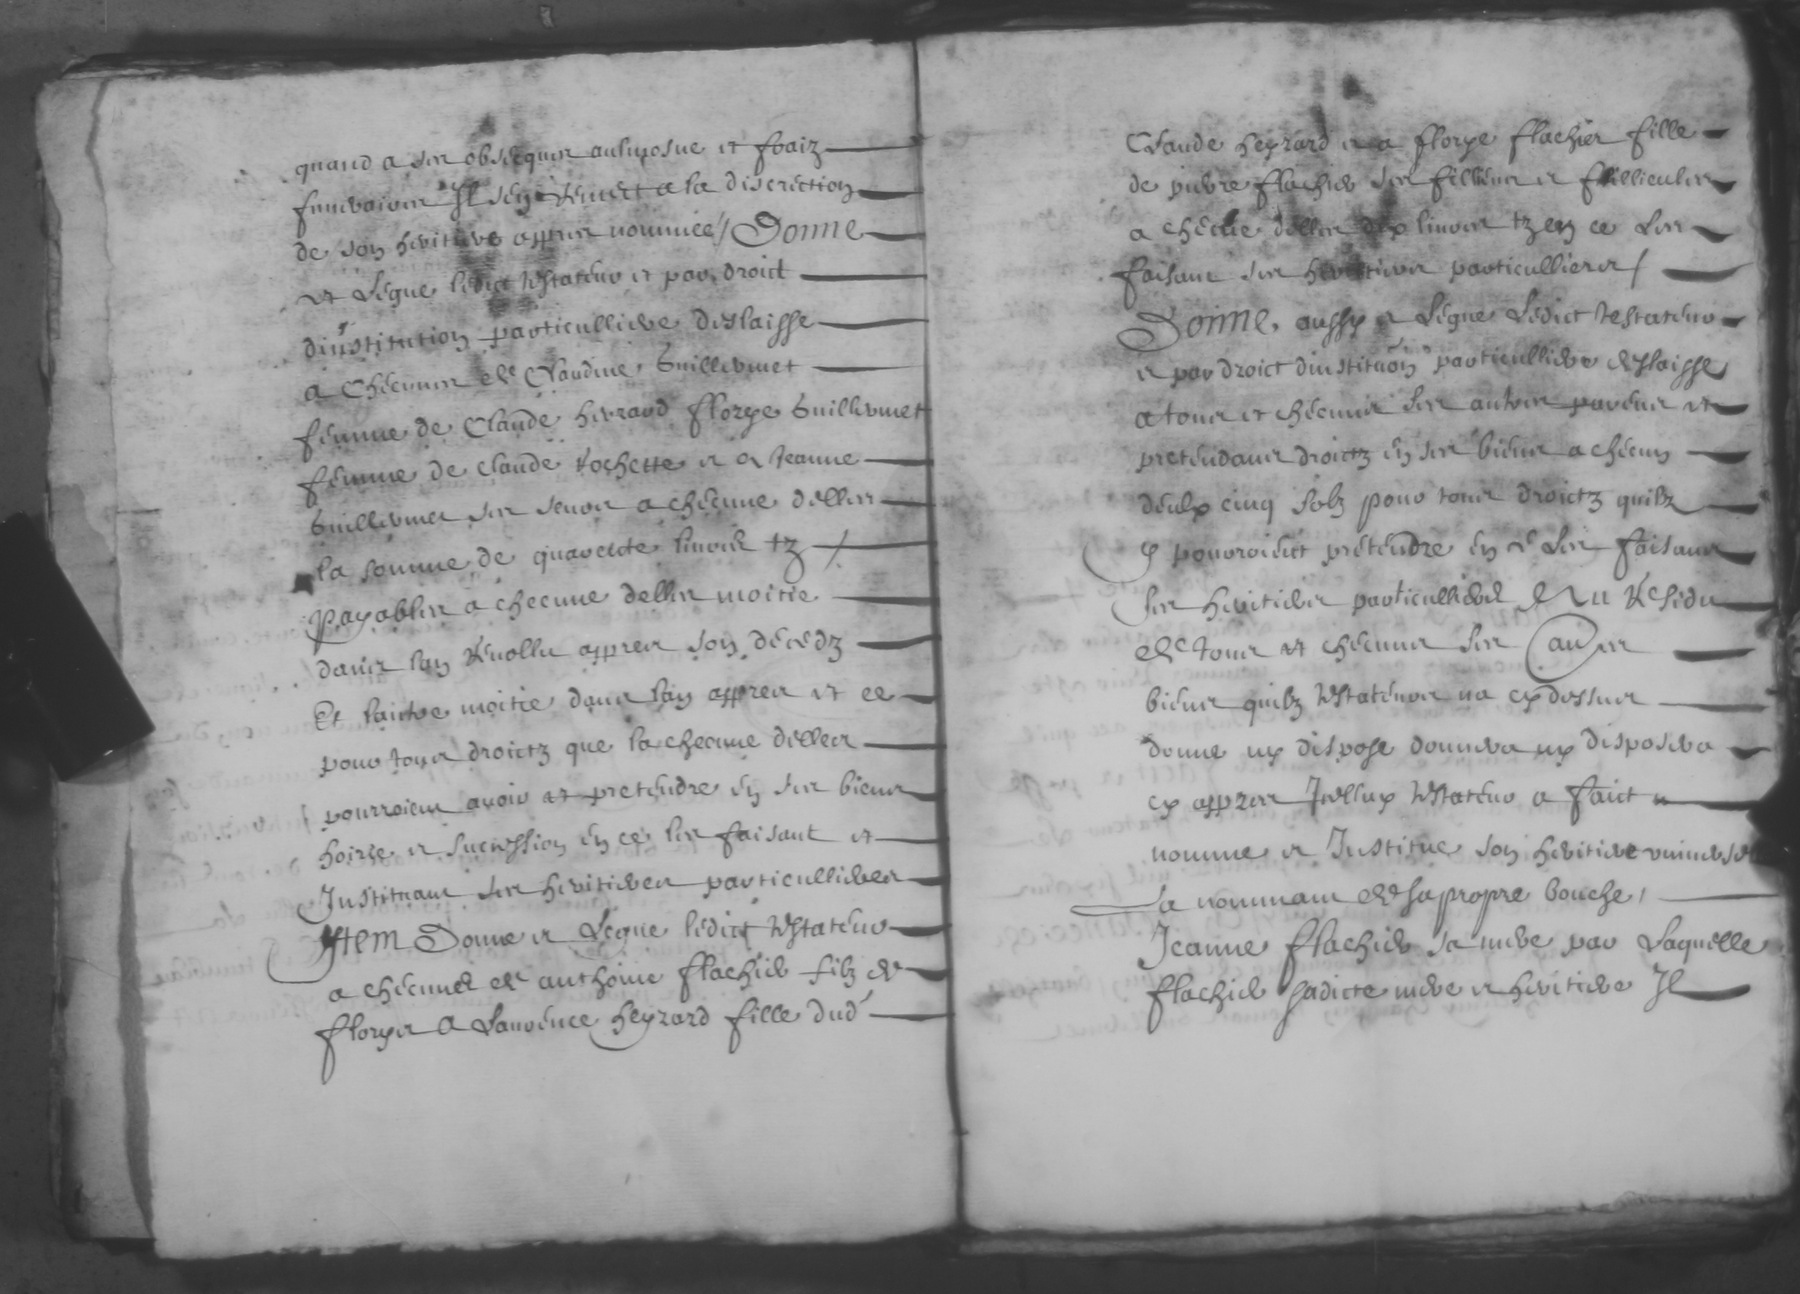 quand a ses obsecques aulmosne et fraiz
funeraires Il sen Remect a la discrection
de son heritiere appres nommee / Donne
et Legue ledict testateur et par droict
dinstitution particulliere deslaisse
a checunes de Claudine Guillermet
femme de Claude heyrard florye Guillermet
femme de claude rochette et a Jeanne
Guillermet ses seurs a checune delles
la somme de quarente livres tz /
Payables a checune delles moitie
dans lan Revollu appres son decedz
Et laictre moitie dans lan appres et ce
pour tous droictz que la checune delles
pourroient avoir et pretendre en ses biens
hoirie et succession en ce les faisant et
Instituant ses heritieres particullieres
Item Donne et Legue ledict testateur
a checuned de anthoine flachier filz de
florye a Laurence heyrard fille dud
Claude heyrard et a florye flachier fille
de pierre flachier ses filleux et fillieules
a checue delles dix livres tz en ce Les
faisant ses heritiers particulliers /
Donne aussy et Legue Ledict testateur
et par droict dinstituon particulliere deslaisse
a tous et checuns ses autres parens et
pretendans droictz en ses biens a checun
deulx cinq solz pour tous droictz quilz
y pouroient pretendre en ce Les faisant
ses heritiers particulliers Et au Residu
de tous et checuns ses autres
biens quilz testateur na cy dessus
donne ny dispose donnera ny disposera
cy appres Icelluy testateur a faict
nomme et Institue son heritiere universelle
La nommant de sa propre bouche
Jeanne flachier sa mere par Laquelle
flachier sadicte mere et heritiere Il